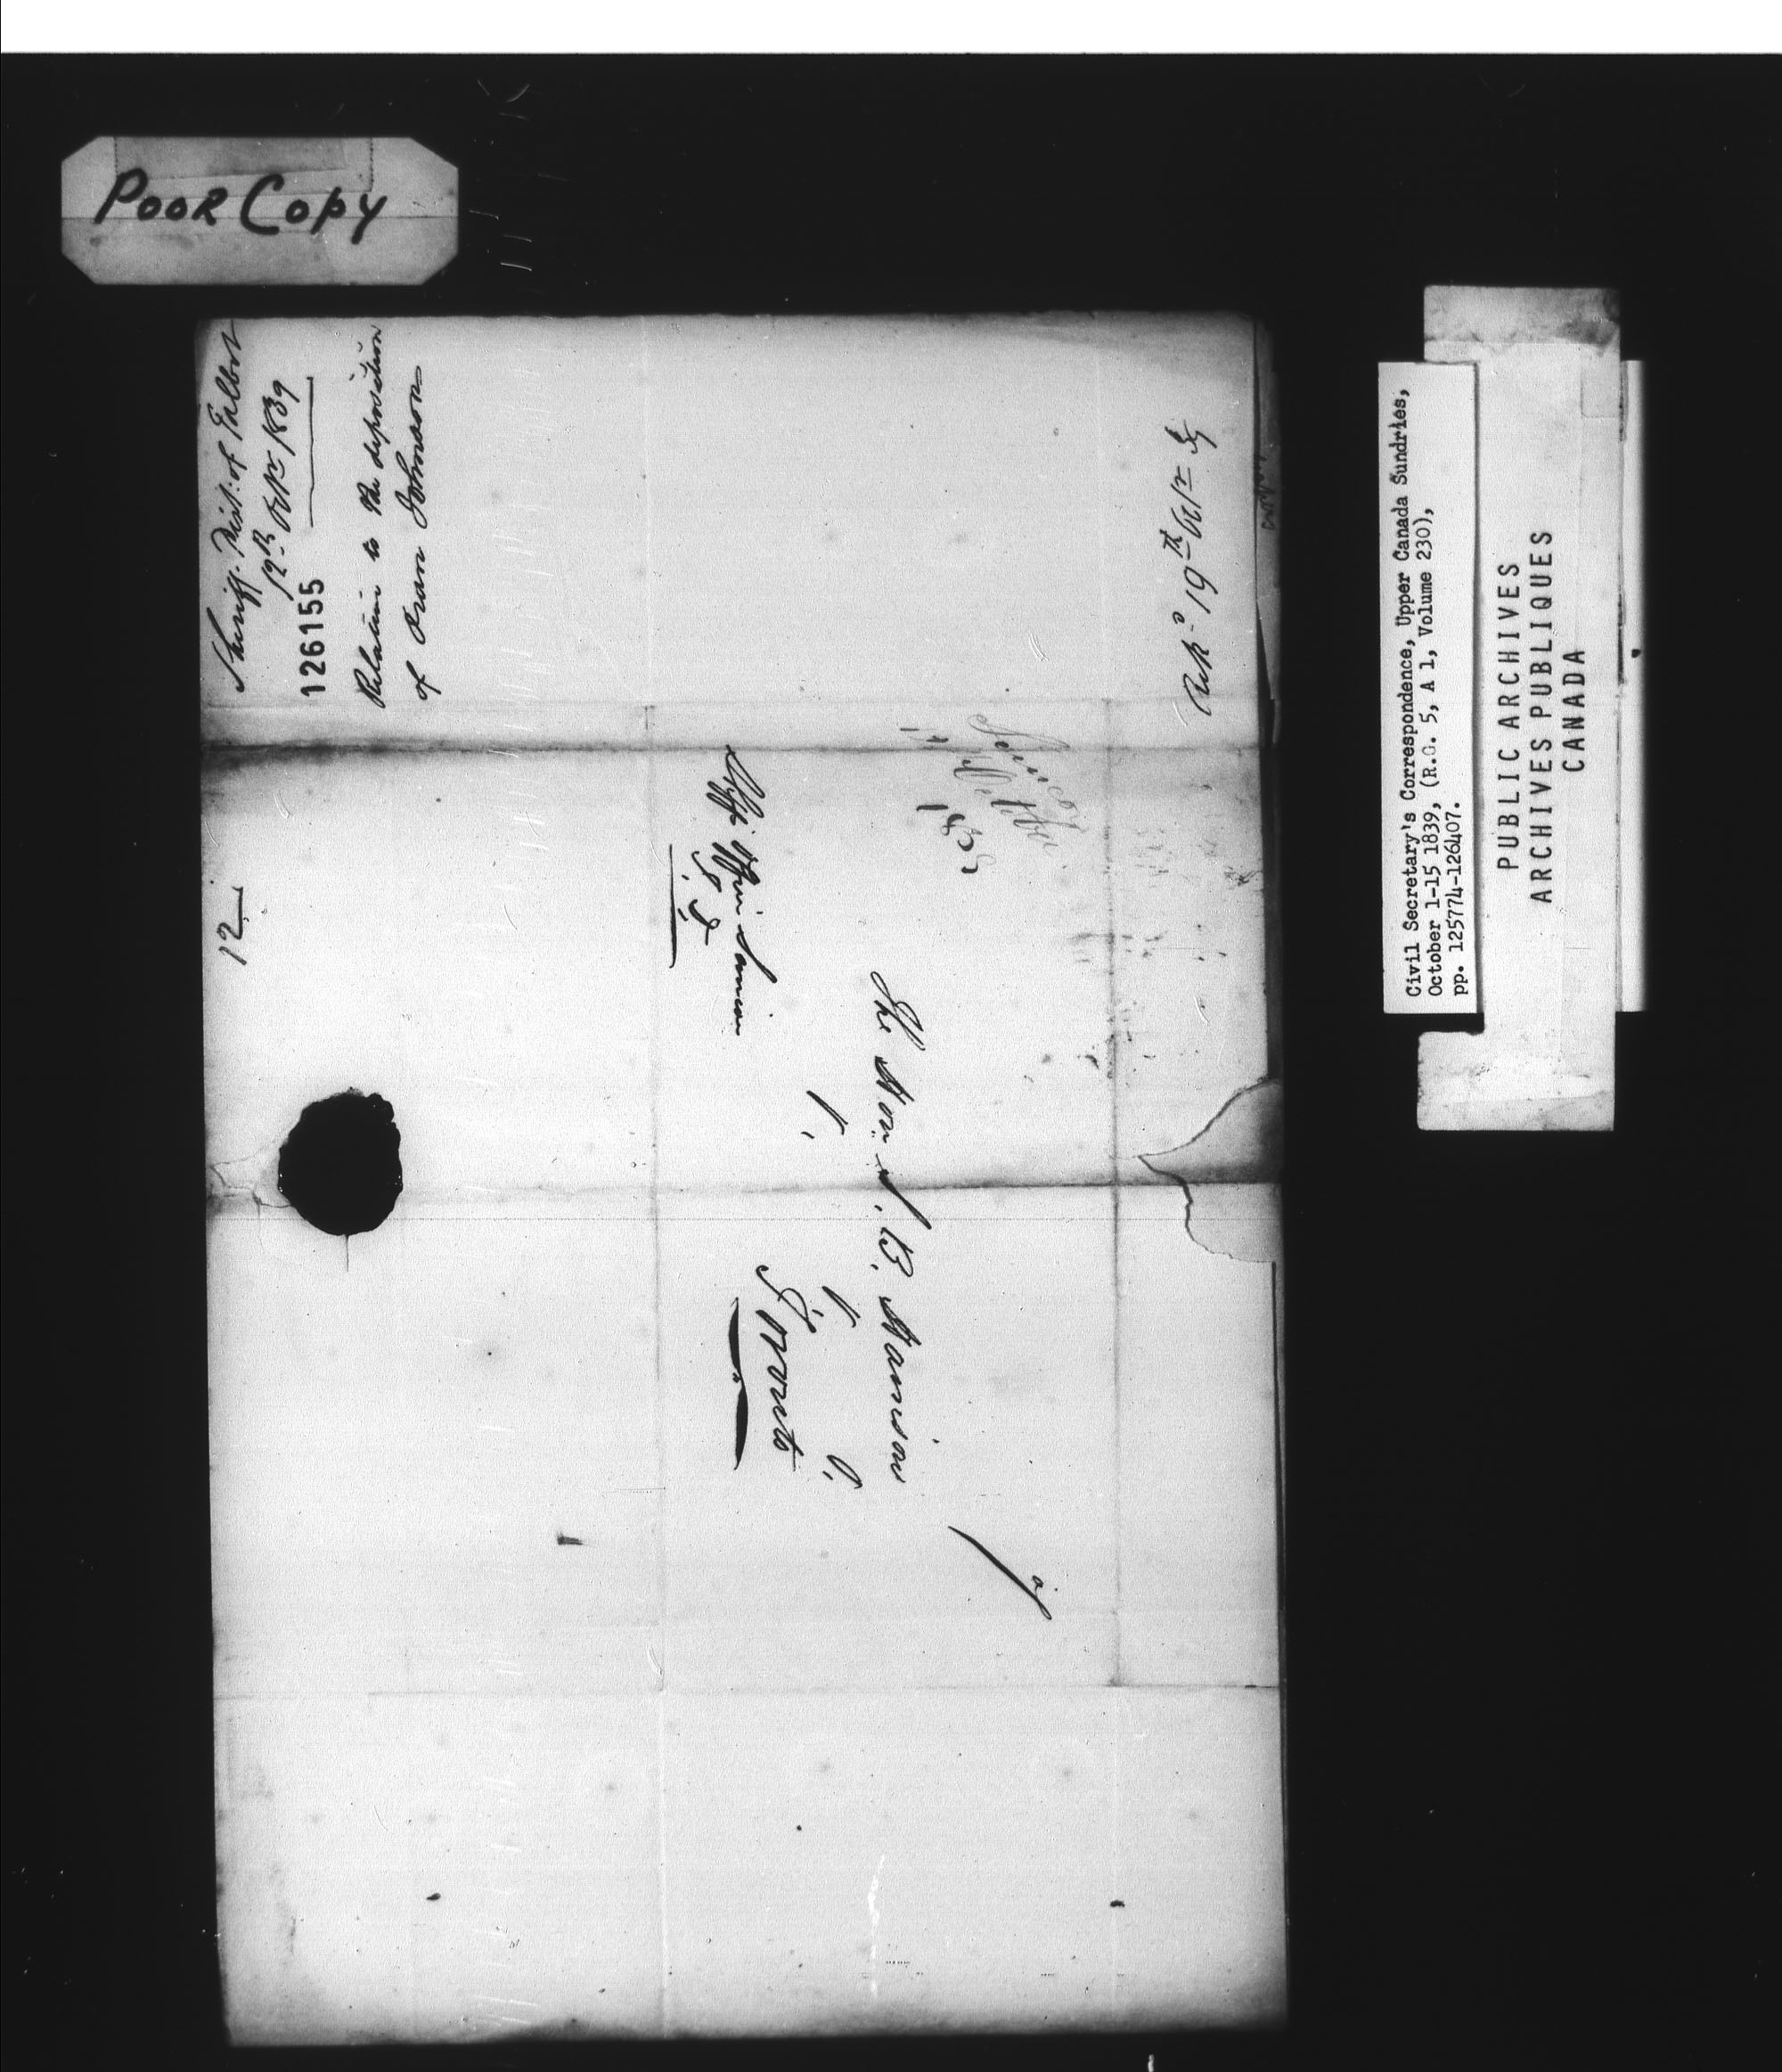 Poor Copy
Sheriff Dist: of Talbot
12th Octr 1839
126155
Relative to the deposition
of Oran Johnson
Ack.d 19th Octr
12
Simcoe
Octber
1839
The Hon. S. B. Harrison
Toronto
Shffs Office Simcoe
Civil Secretary's Correspondence, Upper Canada Sundries,
October 1-15 1839, (R.G. 5, A 1, Volume 230),
pp. 125774-126407.
PUBLIC ARCHIVES
ARCHIVES PUBLIQUES
CANADA